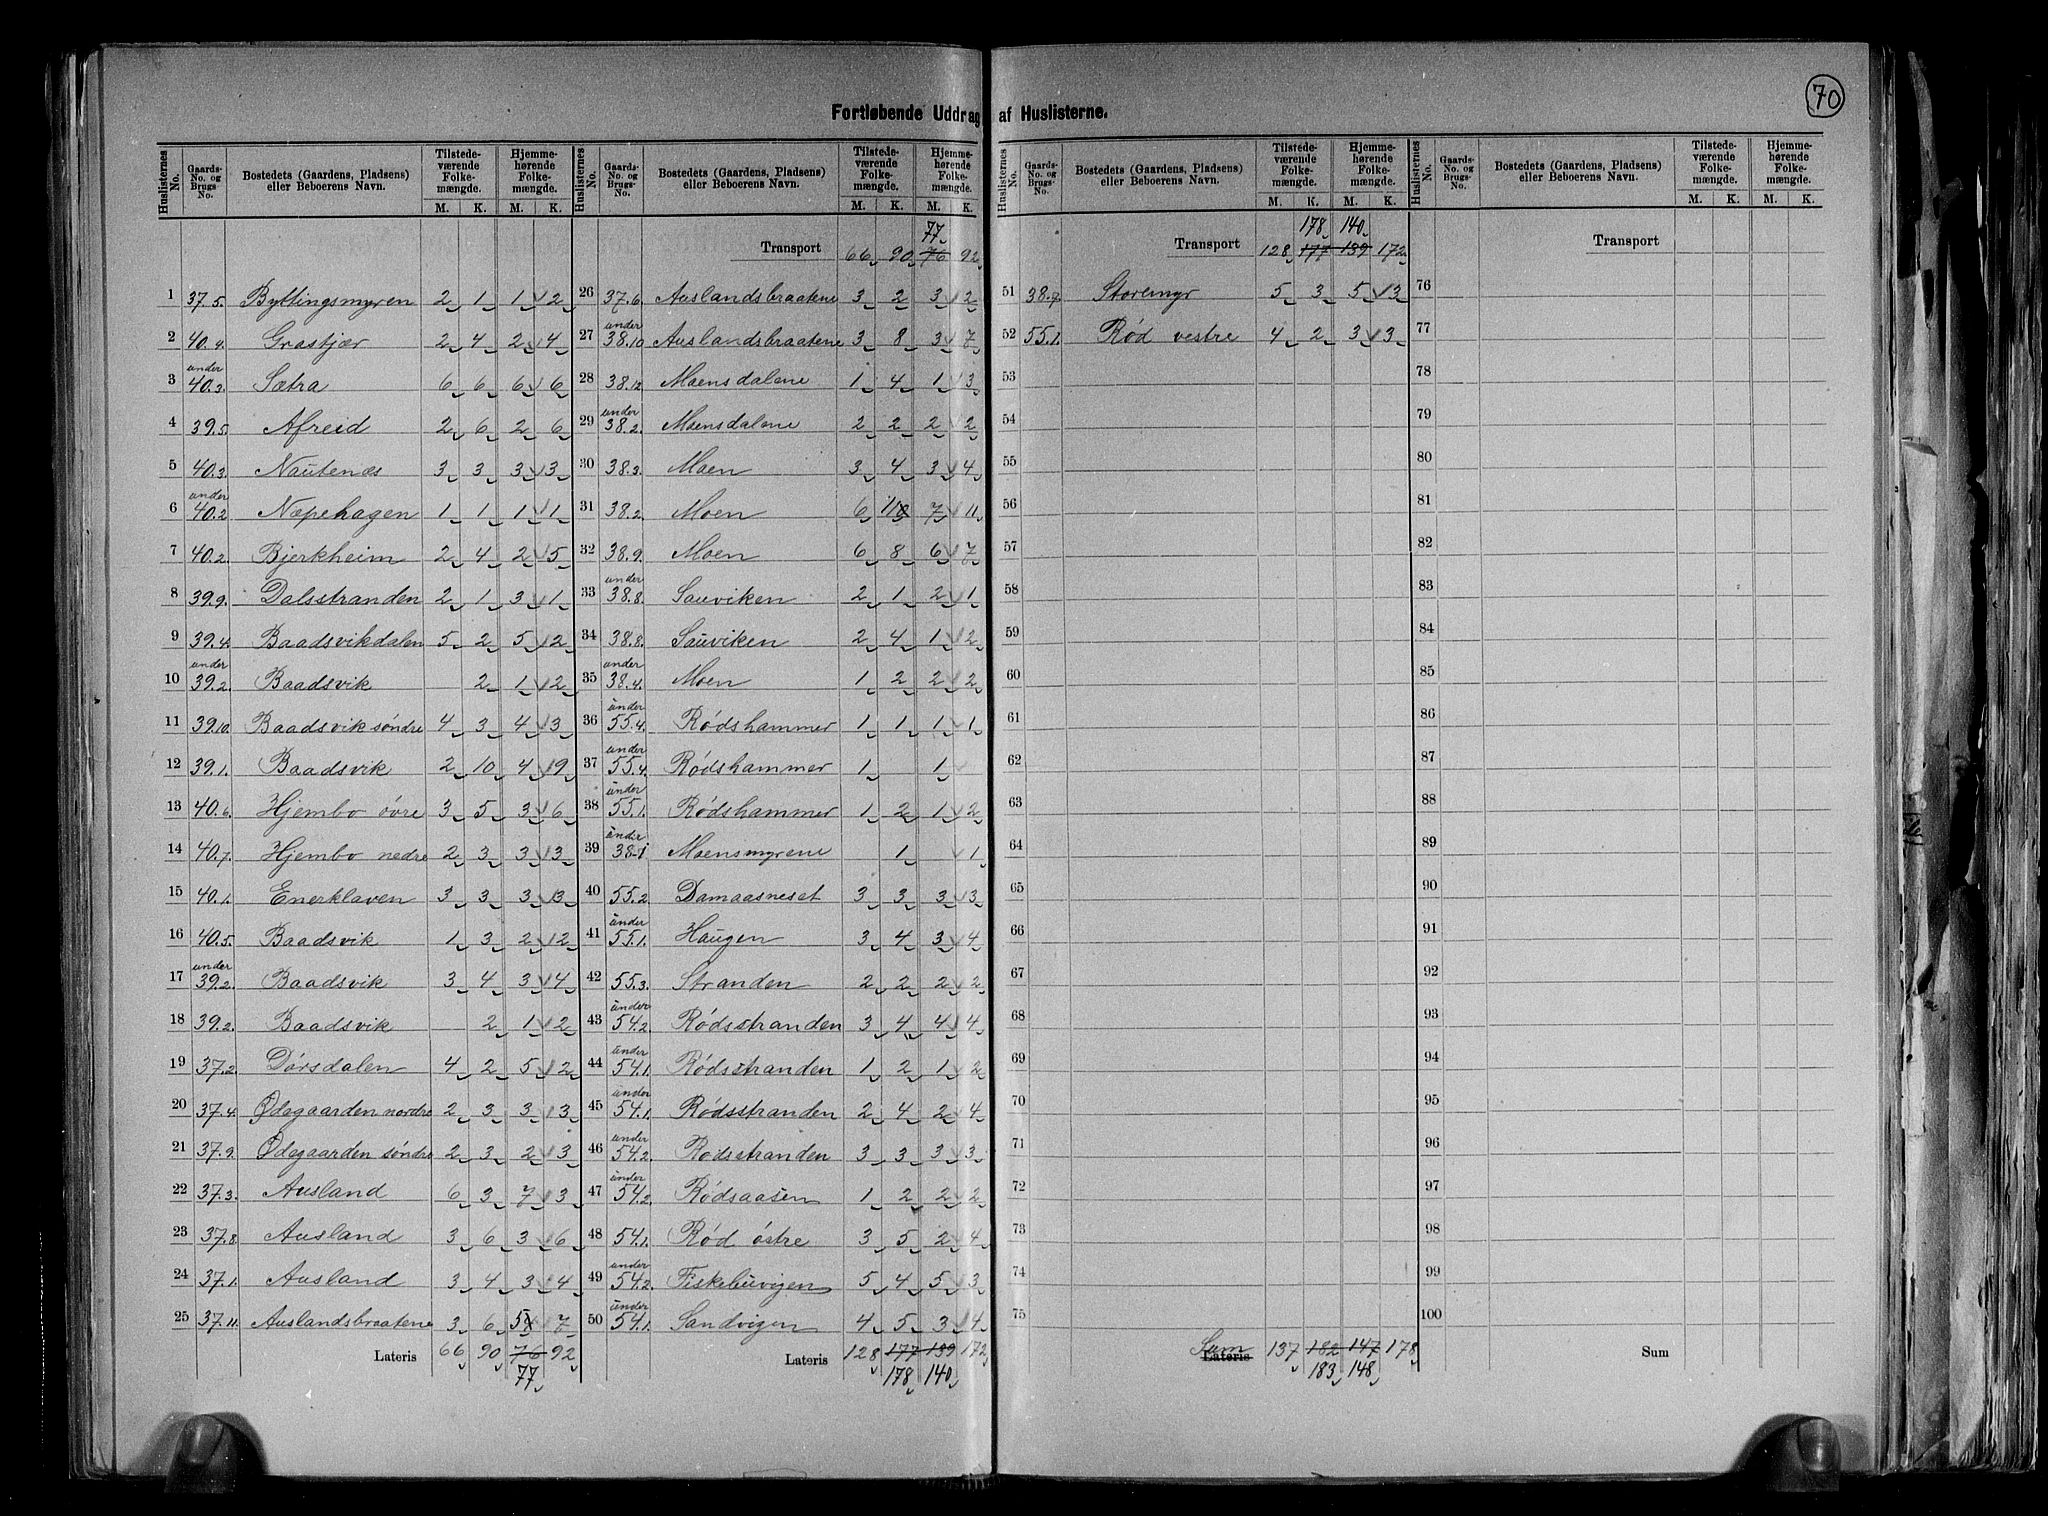 70
Fortløbende Uddrag af Huslisterne.
Huslisternes No. | Gaards-No. og Brugs-No. | Bostedets (Gaardens, Pladsens) eller Beboerens Navn. | Tilstedeværende Folkemængde. M. K. | Hjemmehørende Folkemængde. M. K.
1 37.5. Byttingsmyren 2 1 1 2
2 40.4. Grastjær 2 4 2 4
3 under 40.3. Sætra 6 6 6 6
4 39.5. Afreid 2 6 2 6
5 40.3. Nautenæs 3 3 3 3
6 under 40.2. Næpehagen 1 1 1 1
7 40.2. Bjerkheim 2 4 2 5
8 39.9. Dalsstranden 2 1 3 1
9 39.4. Baadsvikdalen 5 2 5 2
10 under 39.2. Baadsvik 2 1 2
11 39.10. Baadsvik søndre 4 3 4 3
12 39.1. Baadsvik 2 10 4 9
13 40.6. Hjembo øvre 3 5 3 6
14 40.7. Hjembo nedre 2 3 3 3
15 40.1. Enerklaven 3 3 3 3
16 40.5. Baadsvik 1 3 2 2
17 under 39.2. Baadsvik 3 4 3 4
18 39.2. Baadsvik 2 1 2
19 37.2. Dørsdalen 4 2 5 2
20 37.4. Ødegaarden nordre 2 3 3 3
21 37.9. Ødegaarden søndre 2 3 2 3
22 37.3. Ausland 6 3 7 3
23 37.8. Ausland 3 6 3 6
24 37.1. Ausland 3 4 3 4
25 37.11. Auslandsbraatene 3 6 5 7
Lateris 66 90 76 92
77
Huslisternes No. | Gaards-No. og Brugs-No. | Bostedets (Gaardens, Pladsens) eller Beboerens Navn. | Tilstedeværende Folkemængde. M. K. | Hjemmehørende Folkemængde. M. K.
77
Transport 66 90 76 92
26 37.6. Auslandsbraatene 3 2 3 2
27 under 38.10 Auslandsbraatene 3 8 3 7
28 38.12 Moensdalene 1 4 1 3
29 under 38.2. Moensdalene 2 2 2 2
30 38.3. Moen 3 4 3 4
31 38.2. Moen 6 11 7 11
32 38.9. Moen 6 8 6 7
33 under 38.8. Sauviken 2 1 2 1
34 38.8. Sauviken 2 4 1 2
35 under 38.4. Moen 1 2 2 2
36 under 55.4. Rødshammer 1 1 1 1
37 under 55.4. Rødshammer 1 1
38 under 55.1. Rødshammer 1 2 1 2
39 under 38.1 Moensmyrene 1 1
40 55.2. Damaasneset 3 3 3 3
41 under 55.1. Haugen 3 4 3 4
42 55.3. Stranden 2 2 2 2
43 under 54.2. Rødsstranden 3 4 4 4
44 under 54.1. Rødsstranden 1 2 1 2
45 under 54.1. Rødsstranden 2 4 2 4
46 under 54.2. Rødsstranden 3 3 3 3
47 under 54.2. Rødsaasen 1 2 2 2
48 54.1. Rød østre 3 5 2 4
49 under 54.2. Fiskebuvigen 5 4 5 3
50 under 54.1. Sandvigen 4 5 3 4
Lateris 128 177 139 172
178 140
Huslisternes No. | Gaards-No. og Brugs-No. | Bostedets (Gaardens, Pladsens) eller Beboerens Navn. | Tilstedeværende Folkemængde. M. K. | Hjemmehørende Folkemængde. M. K.
178 140
Transport 128 177 139 172
51 38.7. Storemyr 5 3 5 3
52 55.1. Rød vestre 4 2 3 3
53
54
55
56
57
58
59
60
61
62
63
64
65
66
67
68
69
70
71
72
73
74
75
Sum Lateris 137 182 147 178
183 148
Huslisternes No. | Gaards-No. og Brugs-No. | Bostedets (Gaardens, Pladsens) eller Beboerens Navn. | Tilstedeværende Folkemængde. M. K. | Hjemmehørende Folkemængde. M. K.
Transport
76
77
78
79
80
81
82
83
84
85
86
87
88
89
90
91
92
93
94
95
96
97
98
99
100
Sum